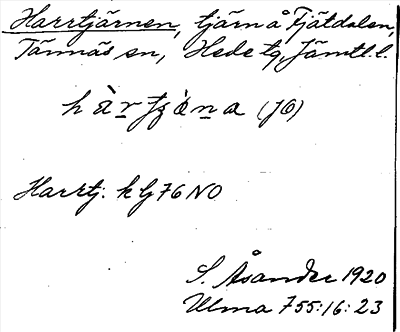 Harrtjärnen, tjärn å Fjätdalen,
Tännäs sn, Hede tg, Jämtl. l.
(JO)
Harrtj. k bj 76 NO
S. Åsander 1920
Ulma 755:16:23